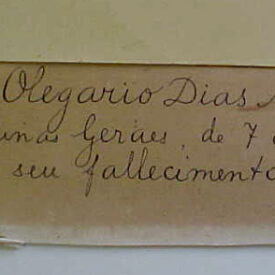 Olegario Dias
inas Geraes, de 7
seu fallecimento